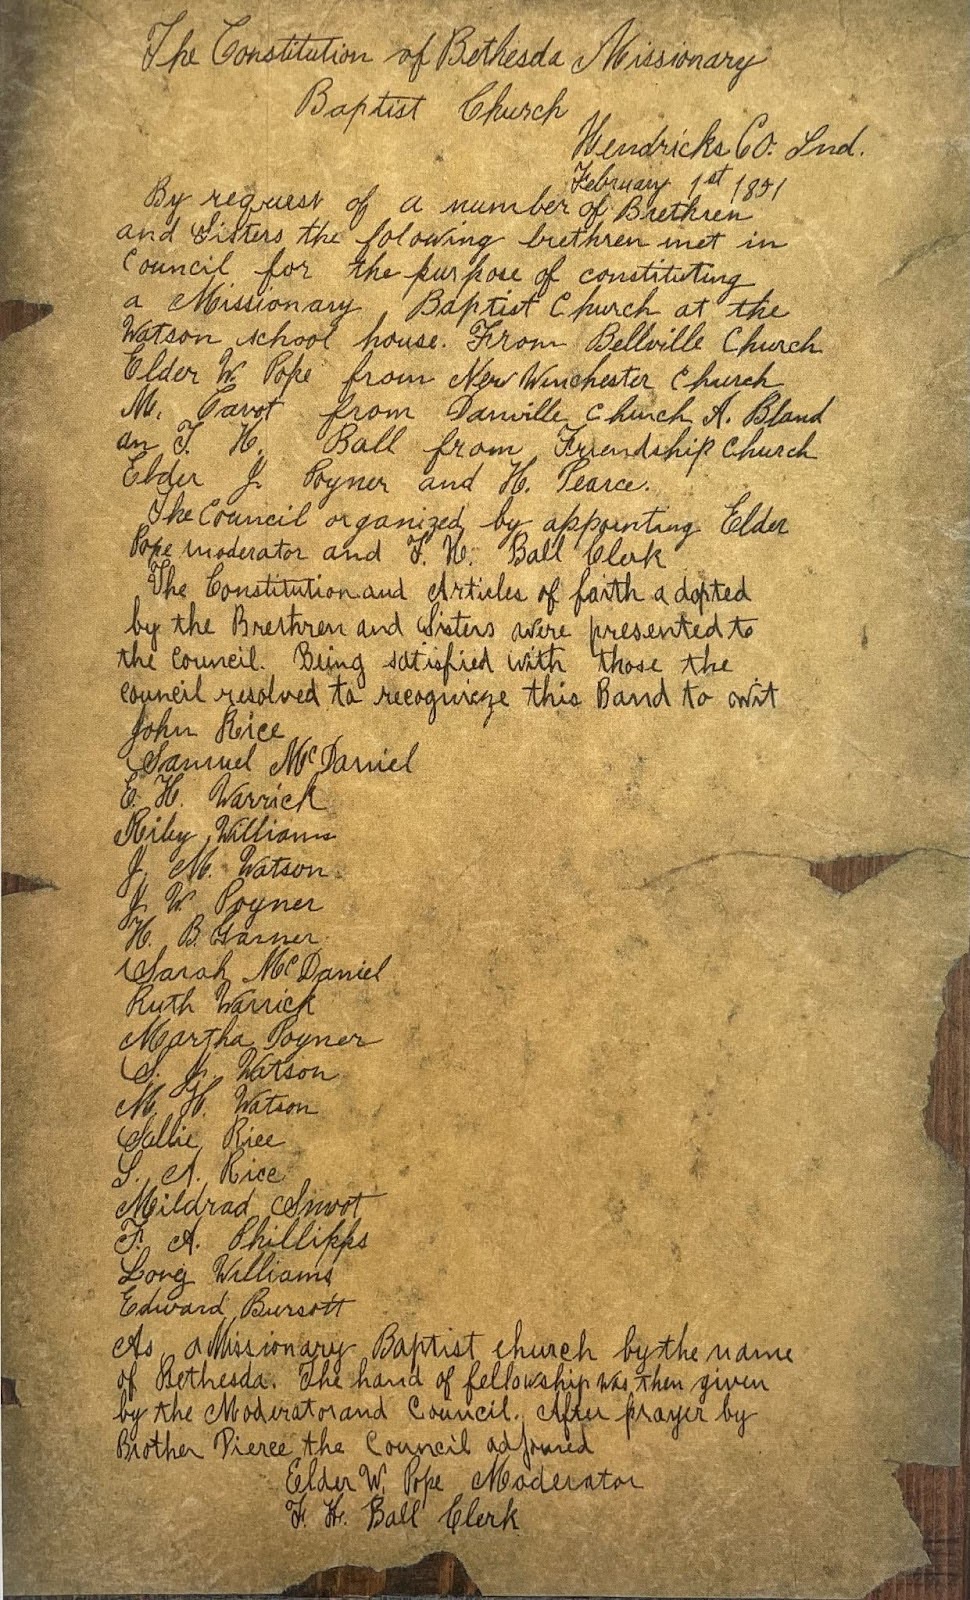 The Constitution of Bethesda Missionary
Baptist Church
Hendricks Co. Ind.
February 1st 1851
By request of a number of Brethren
and Sisters the folowing brethren met in
Council for the purpose of constituting
a Missionary Baptist Church at the
Watson school house. From Bellville Church
Elder W. Pope from New Winchester church
M. Cavot from Danville church A. Bland
an T. H. Ball from Friendship church
Elder J. Poyner and H. Pearce.
The Council organized by appointing Elder
Pope moderator and T. H. Ball Clerk
The Constitution and Articles of faith adopted
by the Brethren and Sisters were presented to
the council. Being satisfied with those the
council resolved to this Band to wit
John Rice
Samuel McDaniel
E. H. Warrick
Riley Williams
J. M. Watson
J. W. Poyner
H. B. Garner
Sarah McDaniel
Ruth Warrick
Martha Poyner
S. J. Watson
M. H. Watson
Sallie Rice
S. A. Rice
Mildrad
F. A. Phillipps
Williams
Edward
As a Missionary Baptist church by the name
of Bethesda. The hand of fellowship was then given
by the Moderator and Council. After prayer by
Brother Pierce the Council
Elder W. Pope Moderator
T. H. Ball Clerk